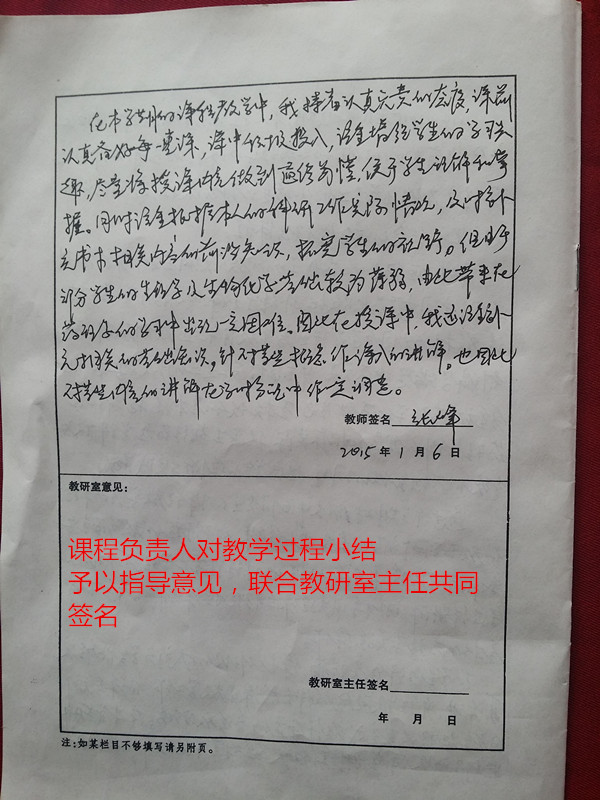 在本学期的课程教学中，我捧着认真负责的态度，课前
认真备好每一堂课，课中积极投入，注重培给学生的学习兴
趣，尽量将授课内容做到通俗易懂，便于学生理解和掌
握。同时注重根据本人的科研工作实际情况，及时补
充书本相关内容的前沿知识，拓宽学生的视野。但由于
部分学生的生理学及生物化学基础较为薄弱，由此带来在
药理学的学习中出现一定困难。因此在授课中，我还注重补
充相关的基础知识，针对某些概念作深入的讲解。也因此
对某些内容的讲解在时间上作一定调整。
教师签名 张峰
2015 年 1 月 6 日
教研室意见：
课程负责人对教学过程小结
予以指导意见，联合教研室主任共同
签名
教研室主任签名
年 月 日
注：如某栏目不够填写请另附页。